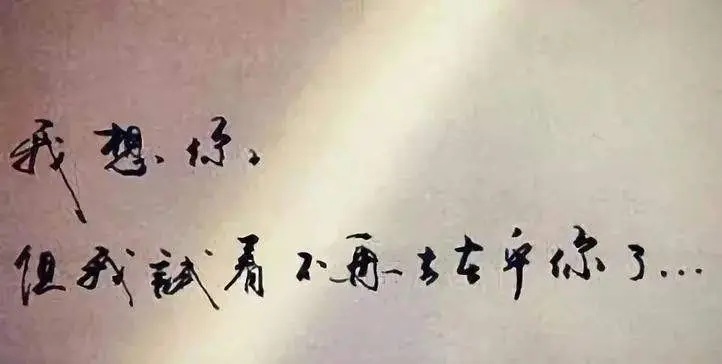 我想你,
但我試着不再去在乎你了...